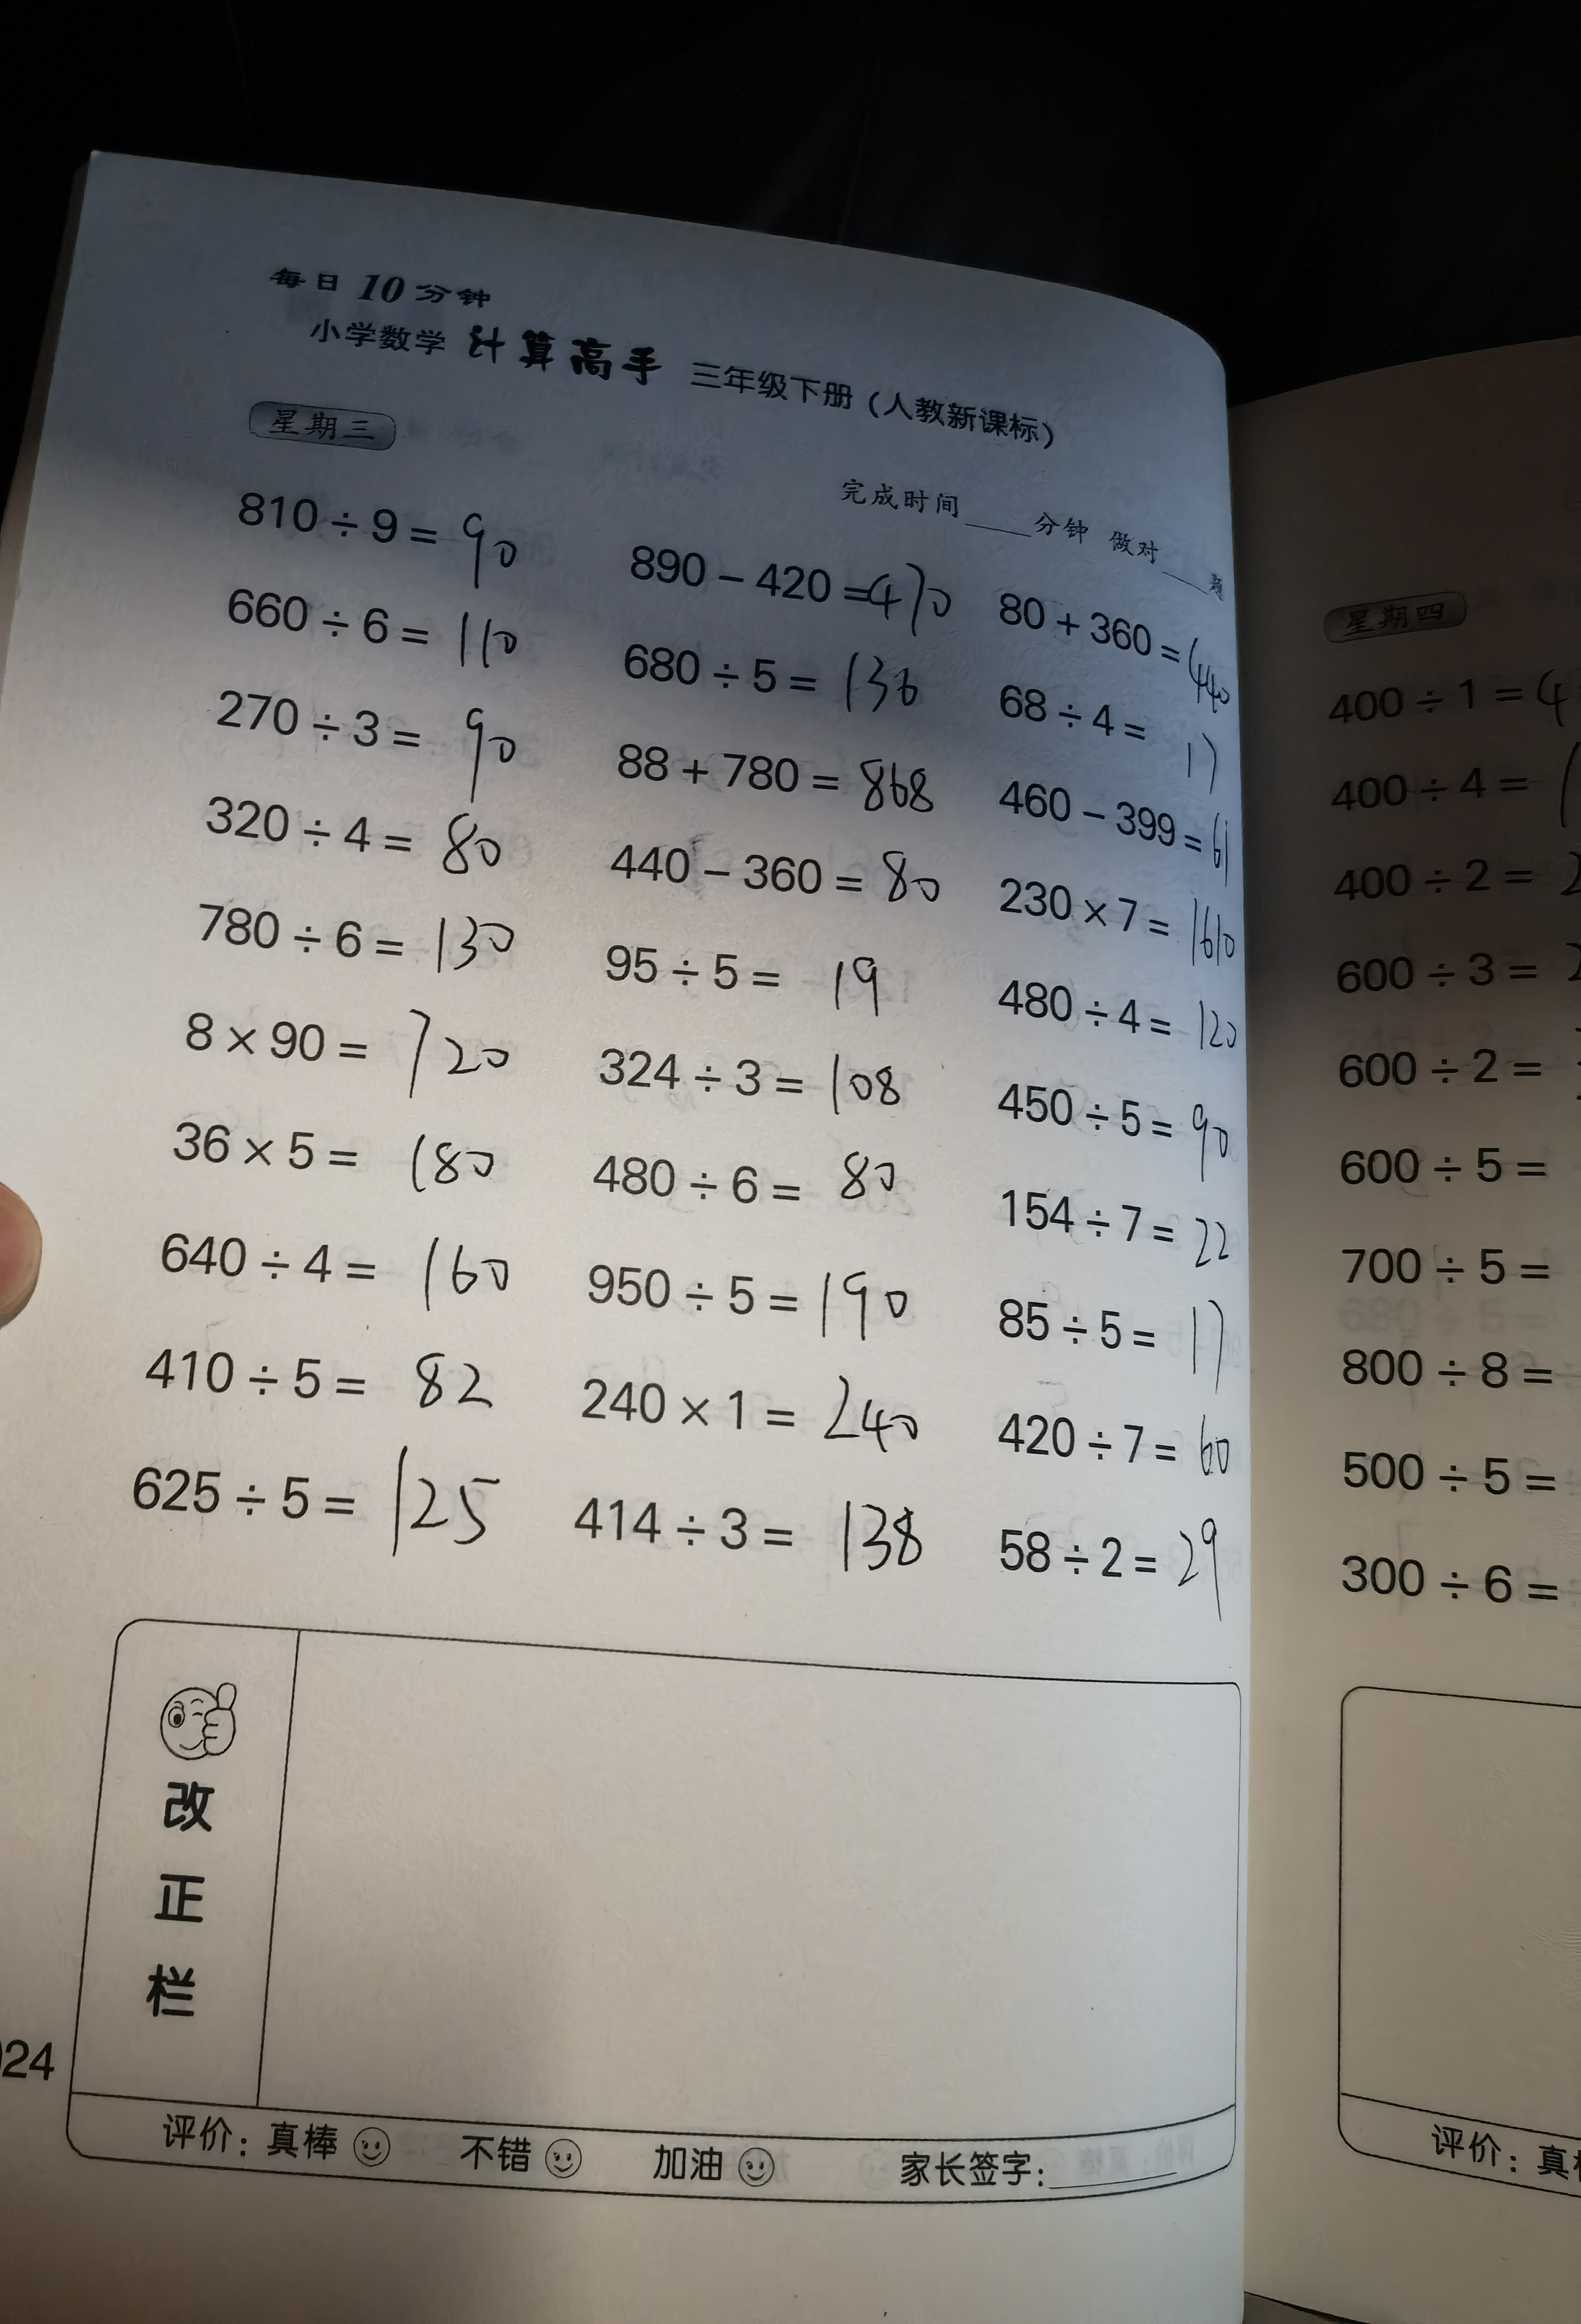 每日10分钟
小学数学 计算高手 三年级下册（人教新课标）
星期三
完成时间____分钟 做对____题
810÷9=90
660÷6=110
270÷3=90
320÷4=80
780÷6=130
8×90=720
36×5=180
640÷4=160
410÷5=82
625÷5=125
890-420=470
680÷5=136
88+780=868
440-360=80
95÷5=19
324÷3=108
480÷6=80
950÷5=190
240×1=240
414÷3=138
80+360=440
68÷4=17
460-399=61
230×7=1610
480÷4=120
450÷5=90
154÷7=22
85÷5=17
420÷7=60
58÷2=29
改正栏
评价：真棒 不错 加油 家长签字：____
024
星期四
400÷1=4
400÷4=1
400÷2=2
600÷3=2
600÷2=
600÷5=
700÷5=
800÷8=
500÷5=
300÷6=
评价：真